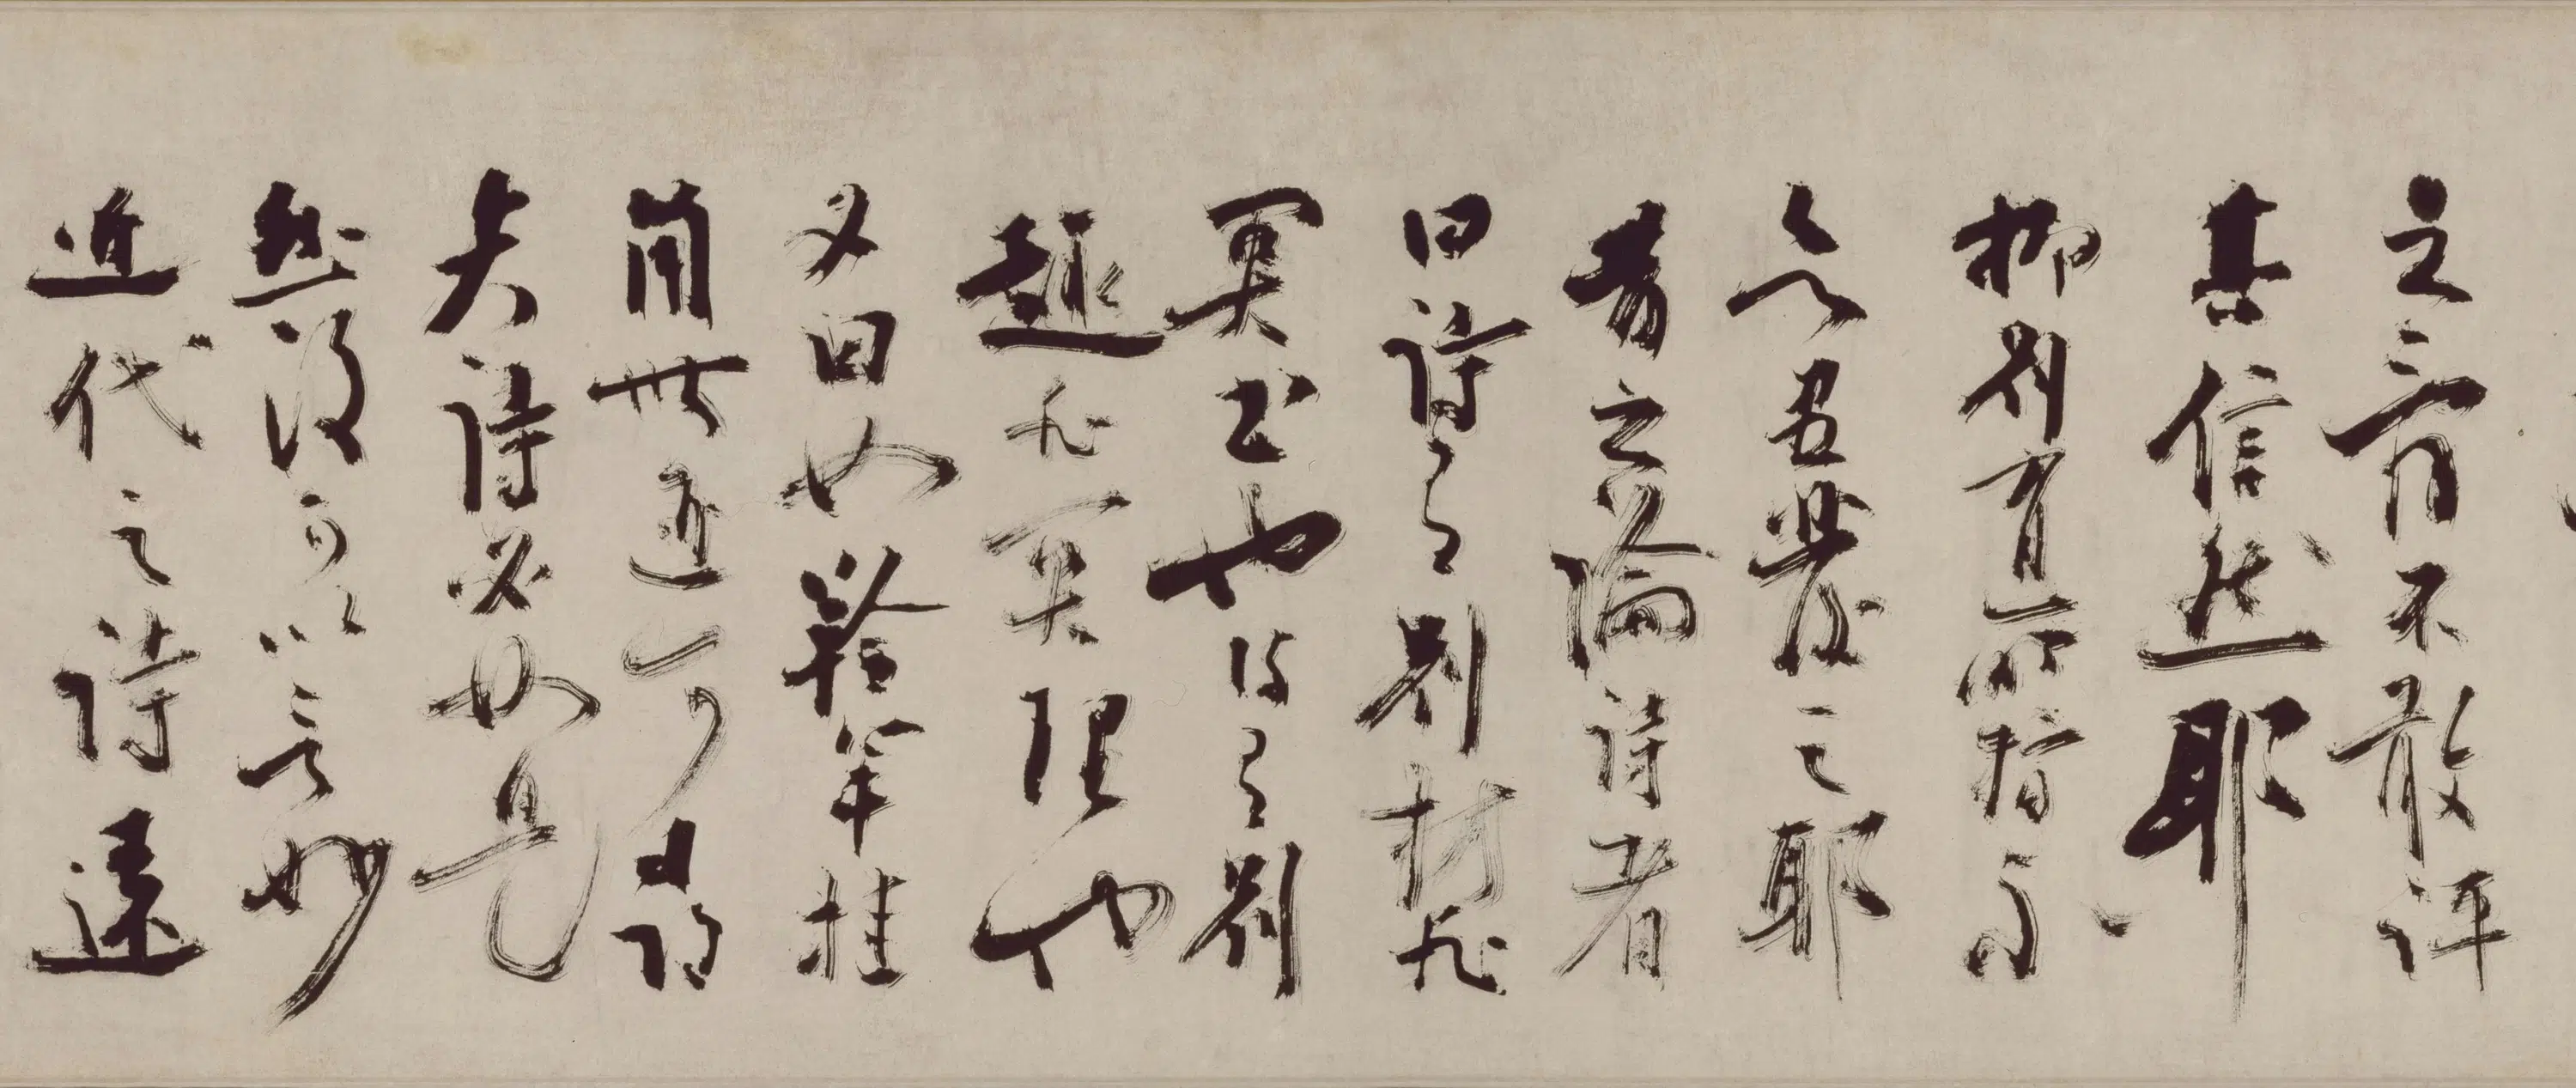 之不敢評
其信然耶
抑別有所指而
吾發之耶
昔之論詩者
曰詩有別材非
關書也詩有別
趣非關理也
又曰如羚羊掛
角無迹可尋
夫詩必如是
然後可以言妙
近代之詩遠